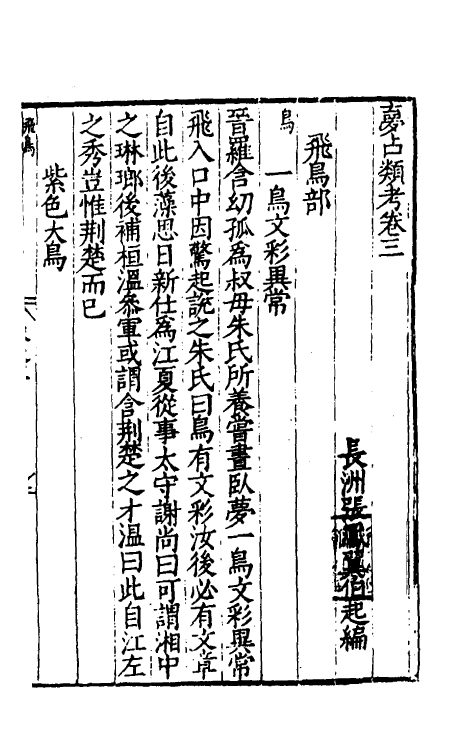 夢占類考卷三
長洲張鳳翼伯起編
飛鳥部
鳥
一鳥文彩異常
晉羅含幼孤為叔母朱氏所養嘗晝臥夢一鳥文彩異常
飛入口中因驚起說之朱氏曰鳥有文彩汝後必有文章
自此後藻思日新仕為江夏從事太守謝尚曰可謂湘中
之琳瑯後補桓溫叅軍或謂含荆楚之才溫曰此自江左
之秀豈惟荆楚而已
紫色大鳥
飛鳥